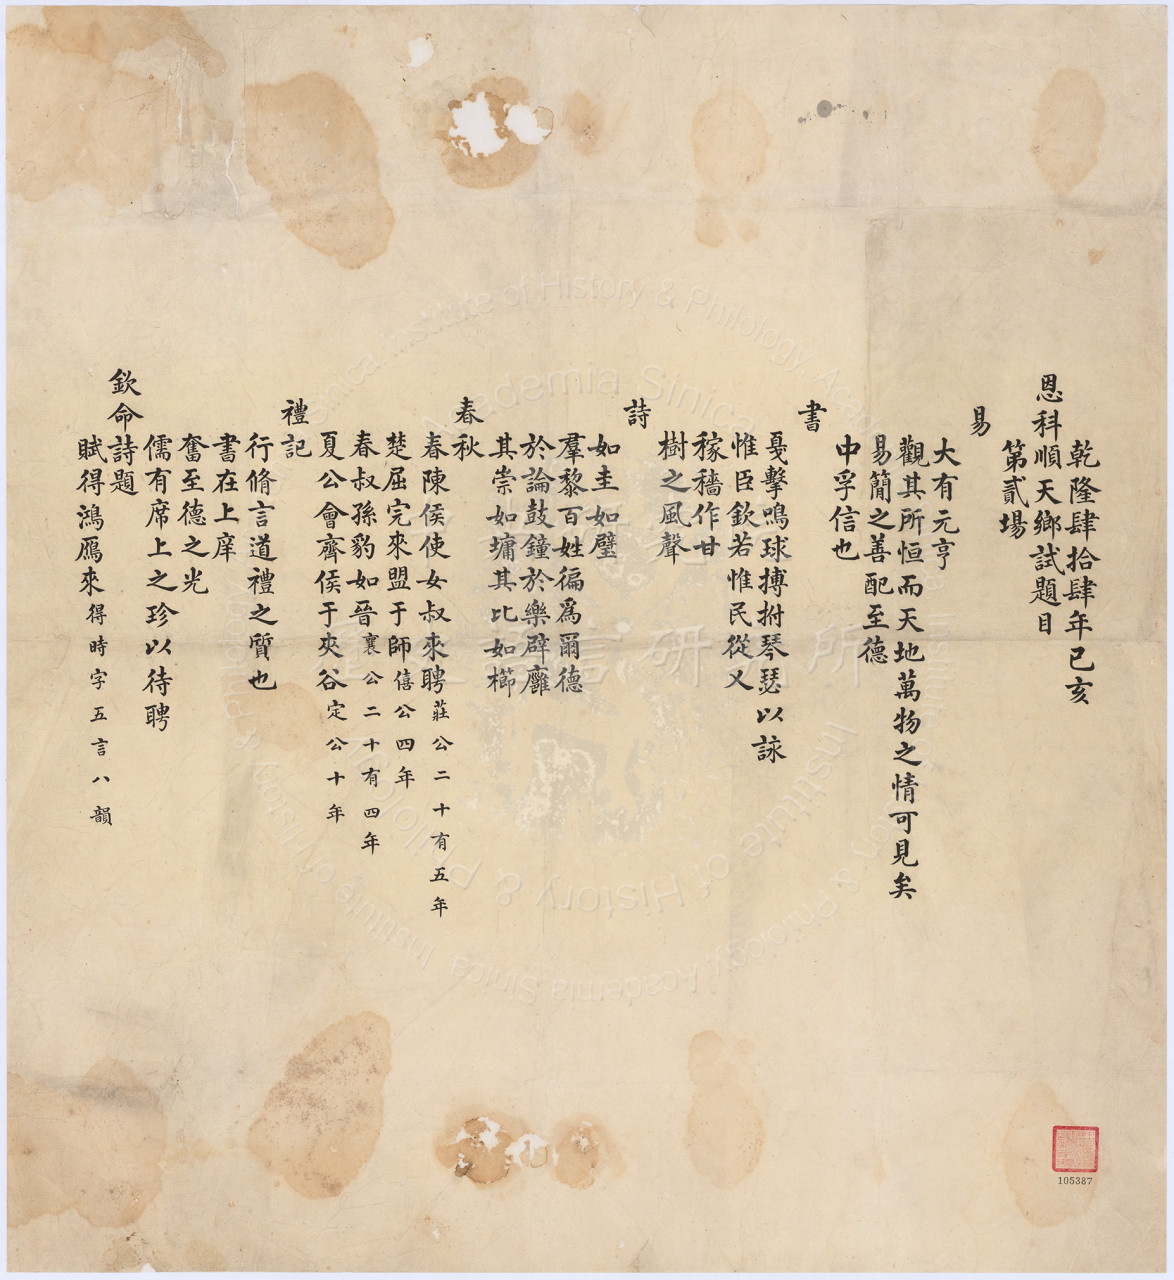 乾隆肆拾肆年己亥
恩科順天鄉試題目
第貳場
易
大有元亨
觀其所恒而天地萬物之情可見矣
易簡之善配至德
中孚信也
書
戛擊鳴球搏拊琴瑟以詠
惟臣欽若惟民從乂
稼穡作甘
樹之風聲
詩
如圭如璧
羣黎百姓徧為爾德
於論鼓鐘於樂辟廱
其崇如墉其比如櫛
春秋
春陳侯使女叔來聘莊公二十有五年
楚屈完來盟于師僖公四年
春叔孫豹如晉襄公二十有四年
夏公會齊侯于夾谷定公十年
禮記
行脩言道禮之質也
書在上庠
奮至德之光
儒有席上之珍以待聘
欽命詩題
賦得鴻鴈來得時字五言八韻
105387
Institute of History & Philology, Academia Sinica